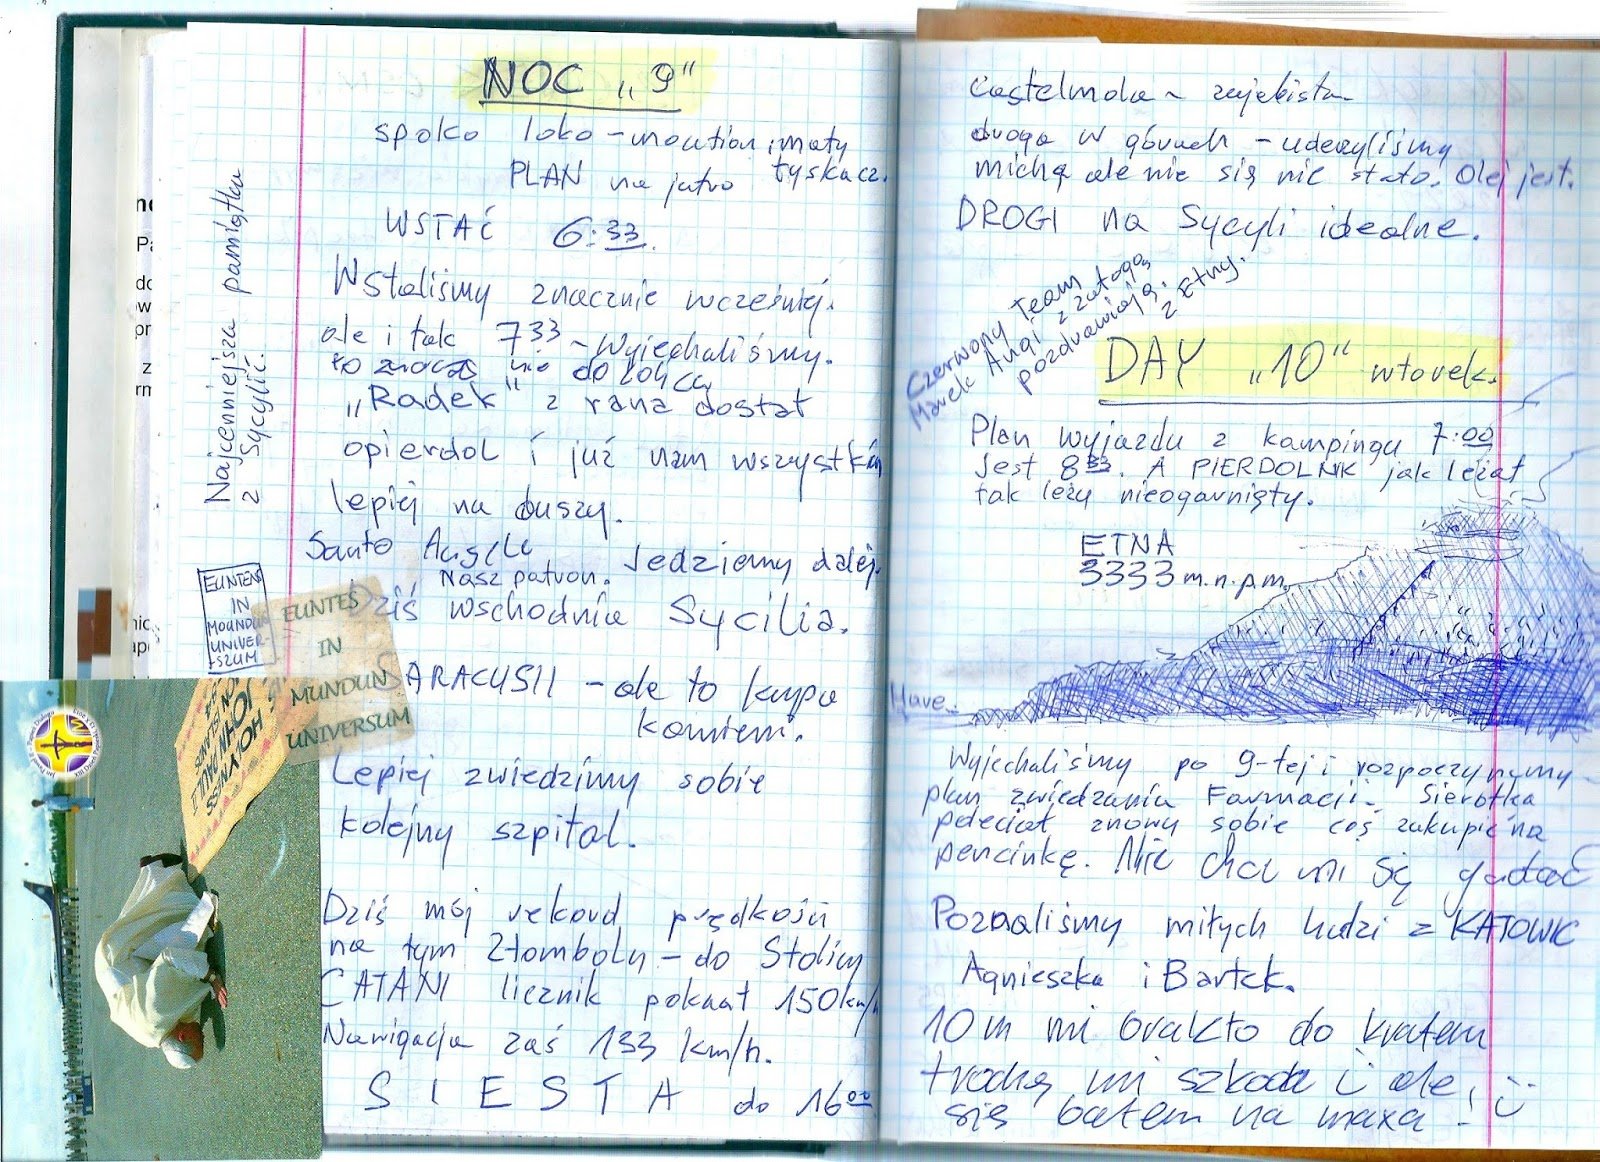 NOC „9"
spoko loko – moution, maty
PLAN na jutro tyskacz.
WSTAĆ 6:33.
Wstaliśmy znacznie wcześniej.
ale i tak 7³³ – wyjechaliśmy.
to znaczy nie do końca
„Radek" z rana dostał
opierdol i już nam wszystkim
lepiej na duszy.
Santo Angelo Jedziemy dalej.
Nasz patron.
Dziś wschodnia Sycilia.
SARACUSII – ale to kupa
kamieni.
Lepiej zwiedzimy sobie
kolejny szpital.
Dziś mój rekord prędkości
na tym Złombolu – do Stolicy
CATANI licznik pokazał 150km/h
Nawigacja zaś 133 km/h.
SIESTA do 16⁰⁰
Najcenniejsza pamiątka
z Sycylii.
EUNTENS
IN
MOUNDUN
UNIVER-
-SZUM
EUNTES
IN
MUNDUN
UNIVERSUM
HOLYNESS
JOHN PAUL II
Castelmola – zajebista
droga w górach – uderzyliśmy
michą ale nie się nic stało. Olej jest.
DROGI na Sycyli idealne.
Czerwony Team
Marek Angi z załogą
pozdrawiają.
z Etny.
DAY „10" wtorek.
Plan wyjazdu z kampingu 7:00
Jest 8³³. A PIERDOLNIK jak leżał
tak leży nieogarnięty.
ETNA
3333 m.n.p.m.
Mare..
Wyjechaliśmy po 9-tej i rozpoczynamy
plan zwiedzania Farmacji – Sierotka
poleciał znowu sobie coś zakupić na
pencinkę. Nic chce mi się gadać
Poznaliśmy miłych ludzi z KATOWIC
Agnieszka i Bartek.
10 m mi brakło do krateru
trochę mi szkoda i ale
się bałem na maxa! :)